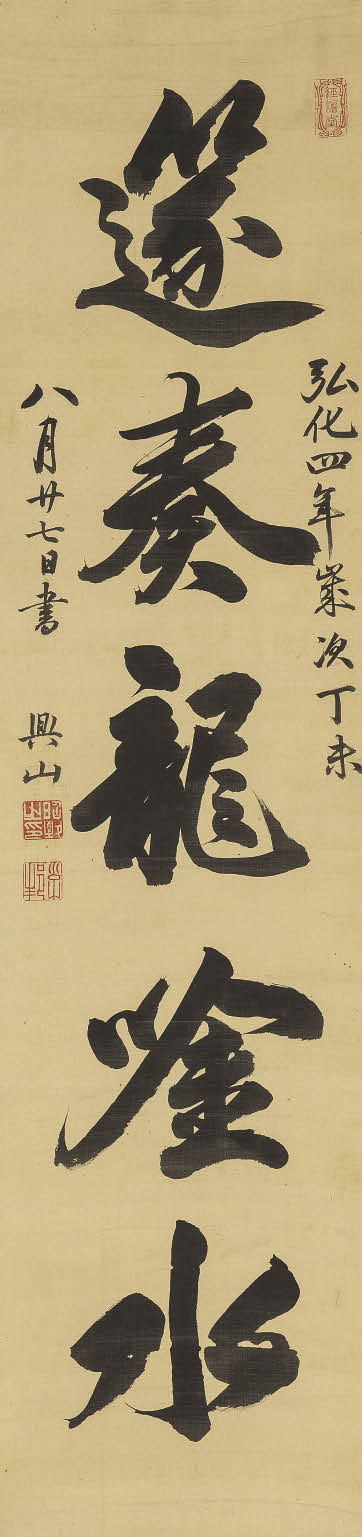 弘化四年歲次丁未
篴奏龍唫水
八月廿七日書 興山